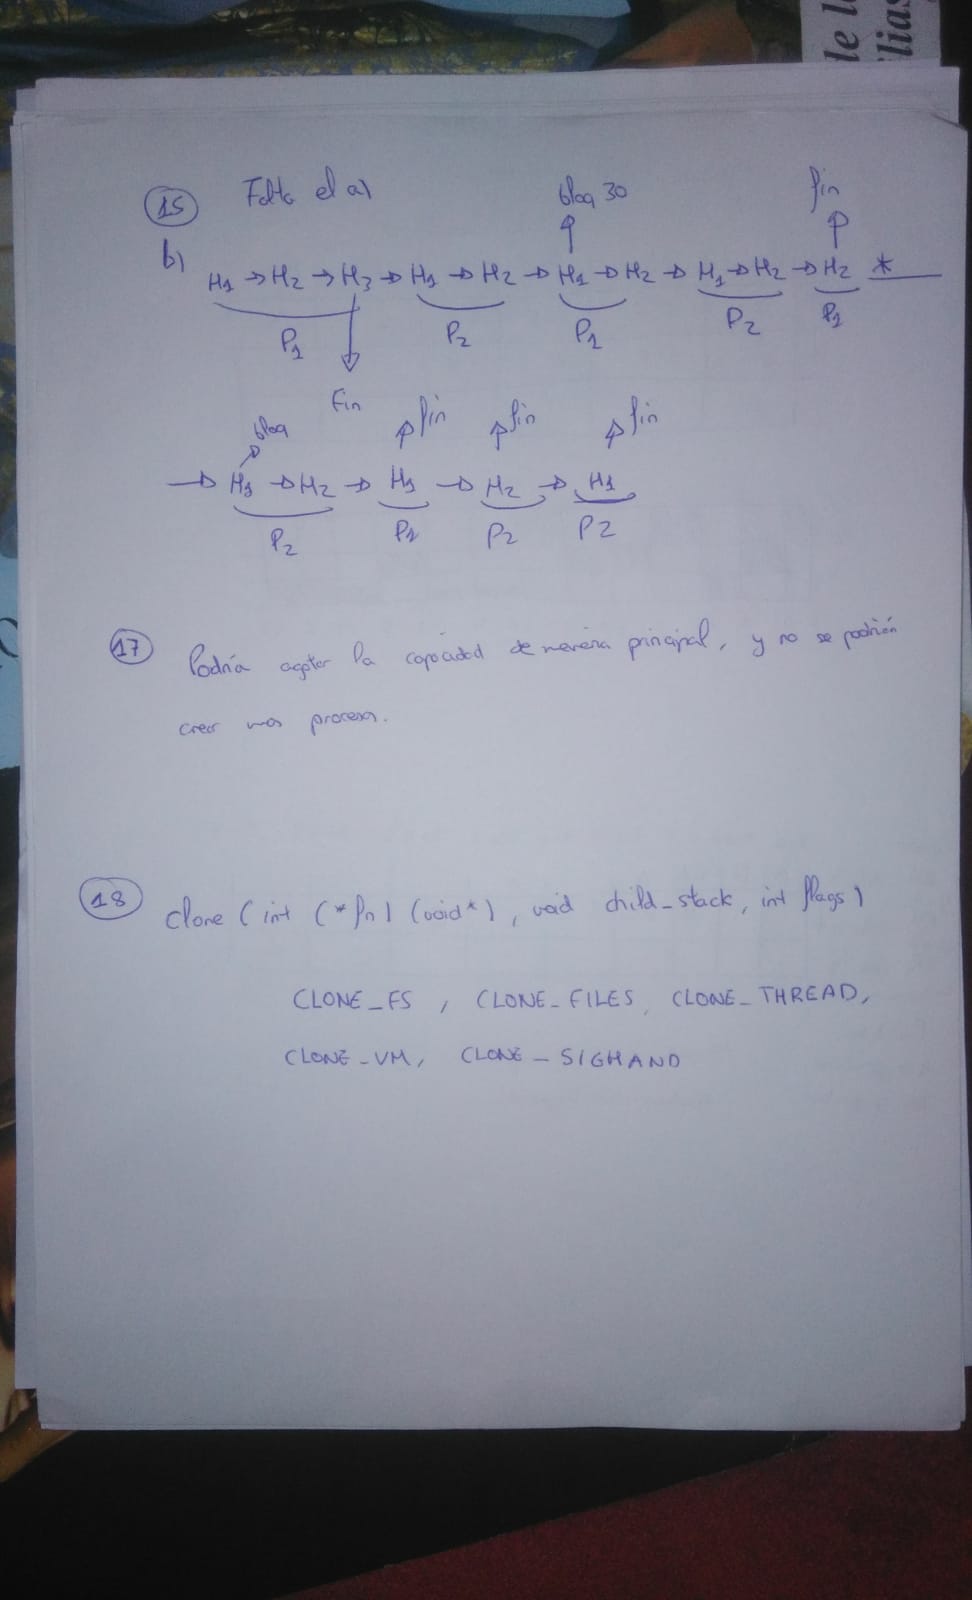 de l
lias
15 Falta el a)
bloq 30 fin
b) H1 → H2 → H3 → H1 → H2 → H1 → H2 → H1 → H2 → H2 *
P1 P2 P1 P2 P1
Fin
bloq fin fin fin
→ H1 → H2 → H1 → H2 → H1
P2 P1 P2 P2
17 Podría agotar la capacidad de memoria principal, y no se podrían
crear mas procesos.
18 clone (int (*fn) (void*), void child_stack, int flags)
CLONE_FS, CLONE_FILES, CLONE_THREAD,
CLONE_VM, CLONE_SIGHAND